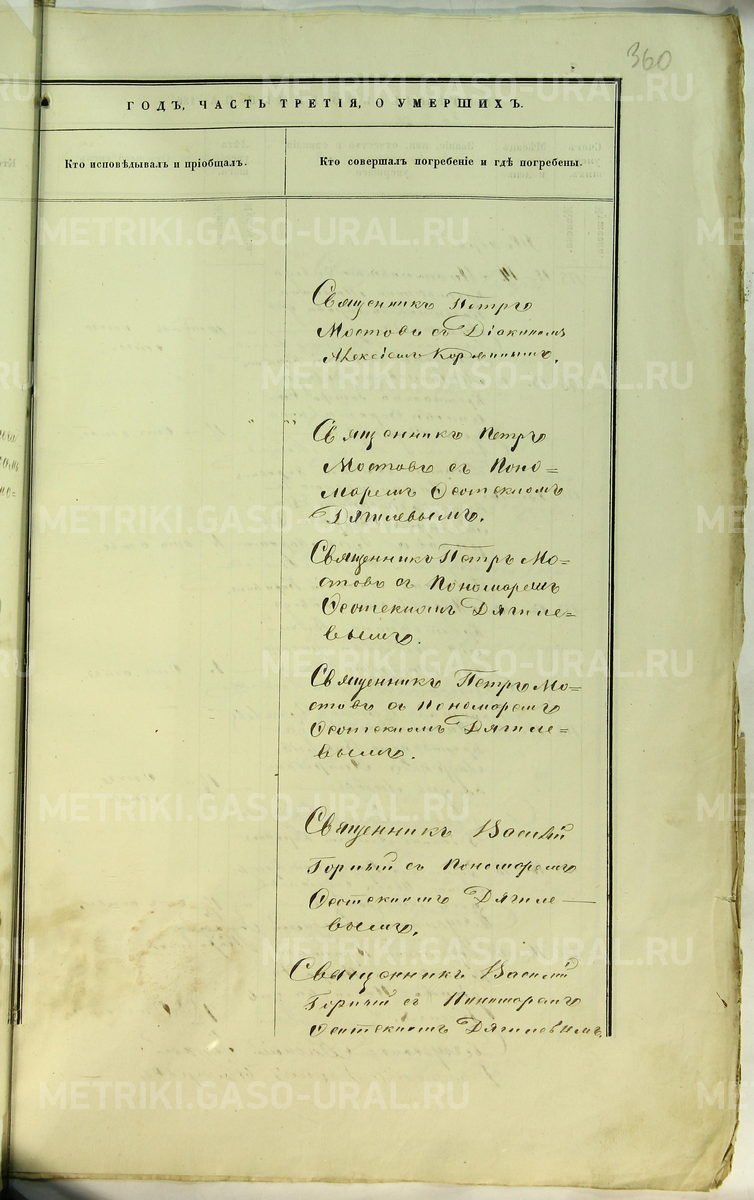 360
ГОДЪ, ЧАСТЬ ТРЕТІЯ, О УМЕРШИХЪ.
Кто исповѣдывалъ и пріобщалъ.
Кто совершалъ погребеніе и гдѣ погребены.
Священникъ Петръ
Мостовъ съ Діакономъ
Алексіемъ
Священникъ Петръ
Мостовъ съ Поно=
маремъ Ѳеотекномъ
Дягилевымъ.
Священникъ Петръ Мо=
стовъ съ Пономаремъ
Ѳеотекномъ Дягиле=
вымъ.
Священникъ Петръ Мо=
стовъ съ Пономаремъ
Ѳеотекномъ Дягиле=
вымъ.
Священникъ Василій
Горный съ Пономаремъ
Ѳеотекномъ Дягиле—
вымъ.
Священникъ Василій
Горный съ Пономаремъ
Ѳеотекномъ Дягилевымъ.
METRIKI.GASO-URAL.RU